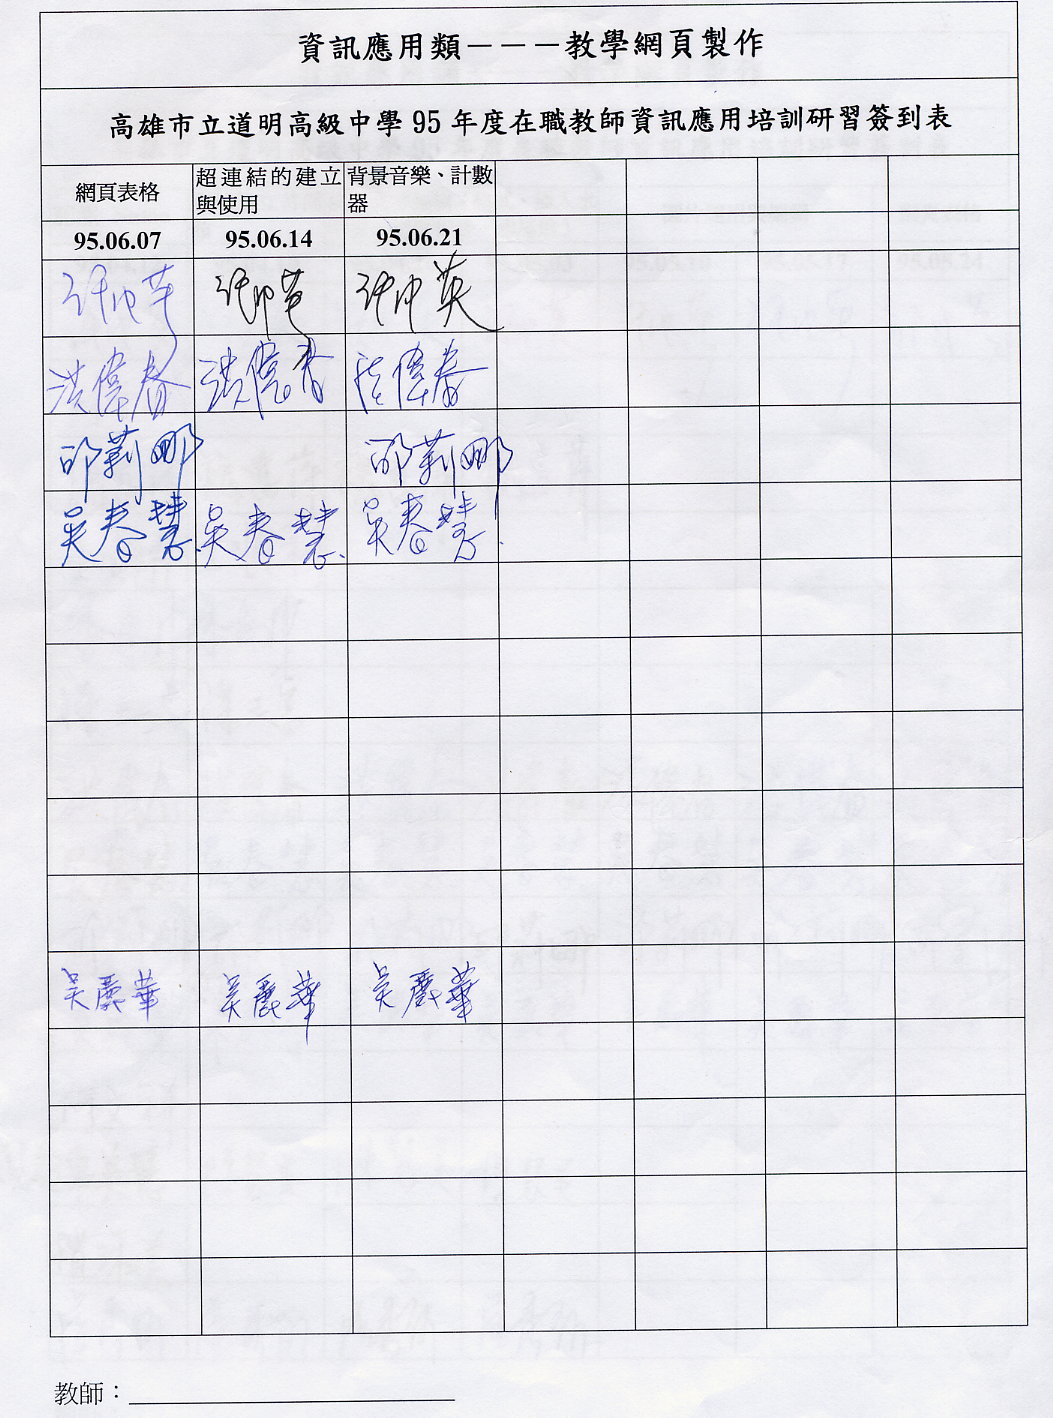 資訊應用類－－－教學網頁製作
高雄市立道明高級中學 95 年度在職教師資訊應用培訓研習簽到表
網頁表格
超連結的建立
與使用
背景音樂、計數
器
95.06.07 95.06.14 95.06.21
許仲英
洪偉春 洪偉春 洪偉春
邱莉娜 邱莉娜
吳春慧 吳春慧 吳春慧
吳麗華 吳麗華 吳麗華
教師：